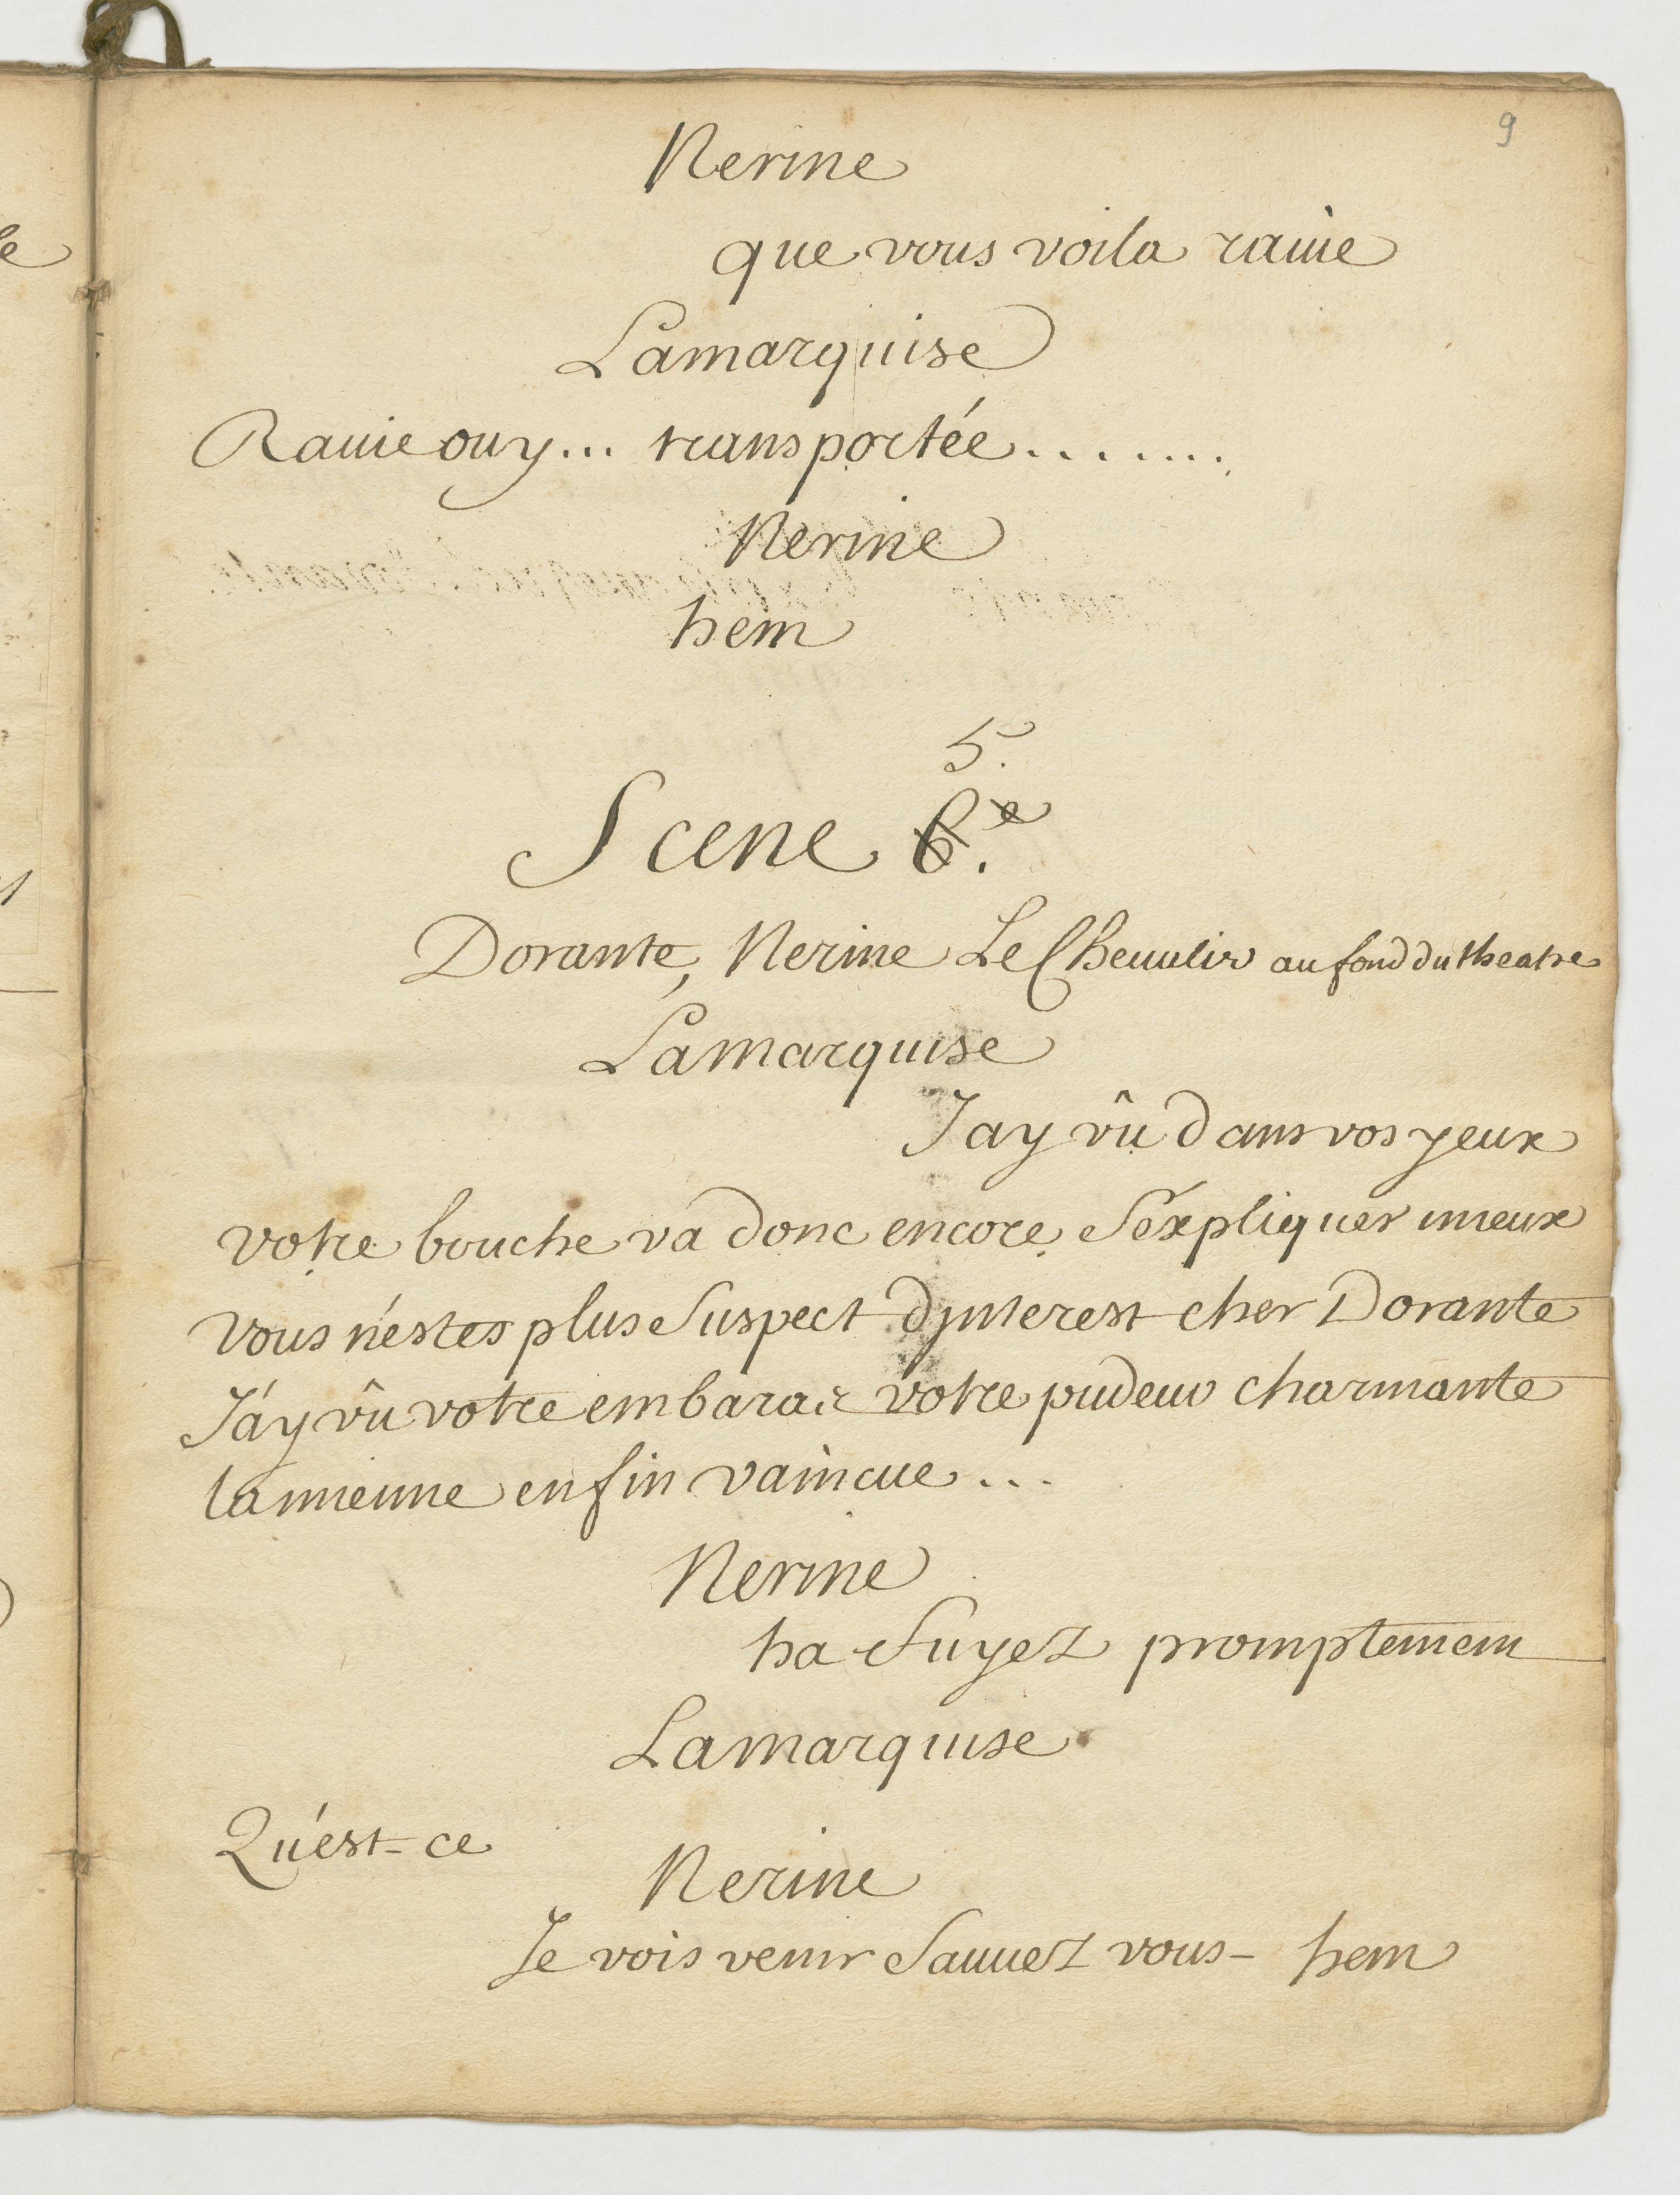 9
Nerine
que vous voila rauie
Lamarquise
Rauie ouy... transportée........
Nerine
hem
5.
Scene 6.e
Dorante, Nerine Le Cheualier au fond du theatre
Lamarquise
Jay vû dans vos yeux
votre bouche va donc encore s'éxpliquer mieux
vous n'éstes plus suspect dJnterest cher Dorante
J'ay vû votre embaras votre pudeur charmante
la mienne enfin vaincue...
Nerine
ha fuyez promptement
Lamarquise
Qu'est-ce
Nerine
Je vois venir sauuez vous- hem